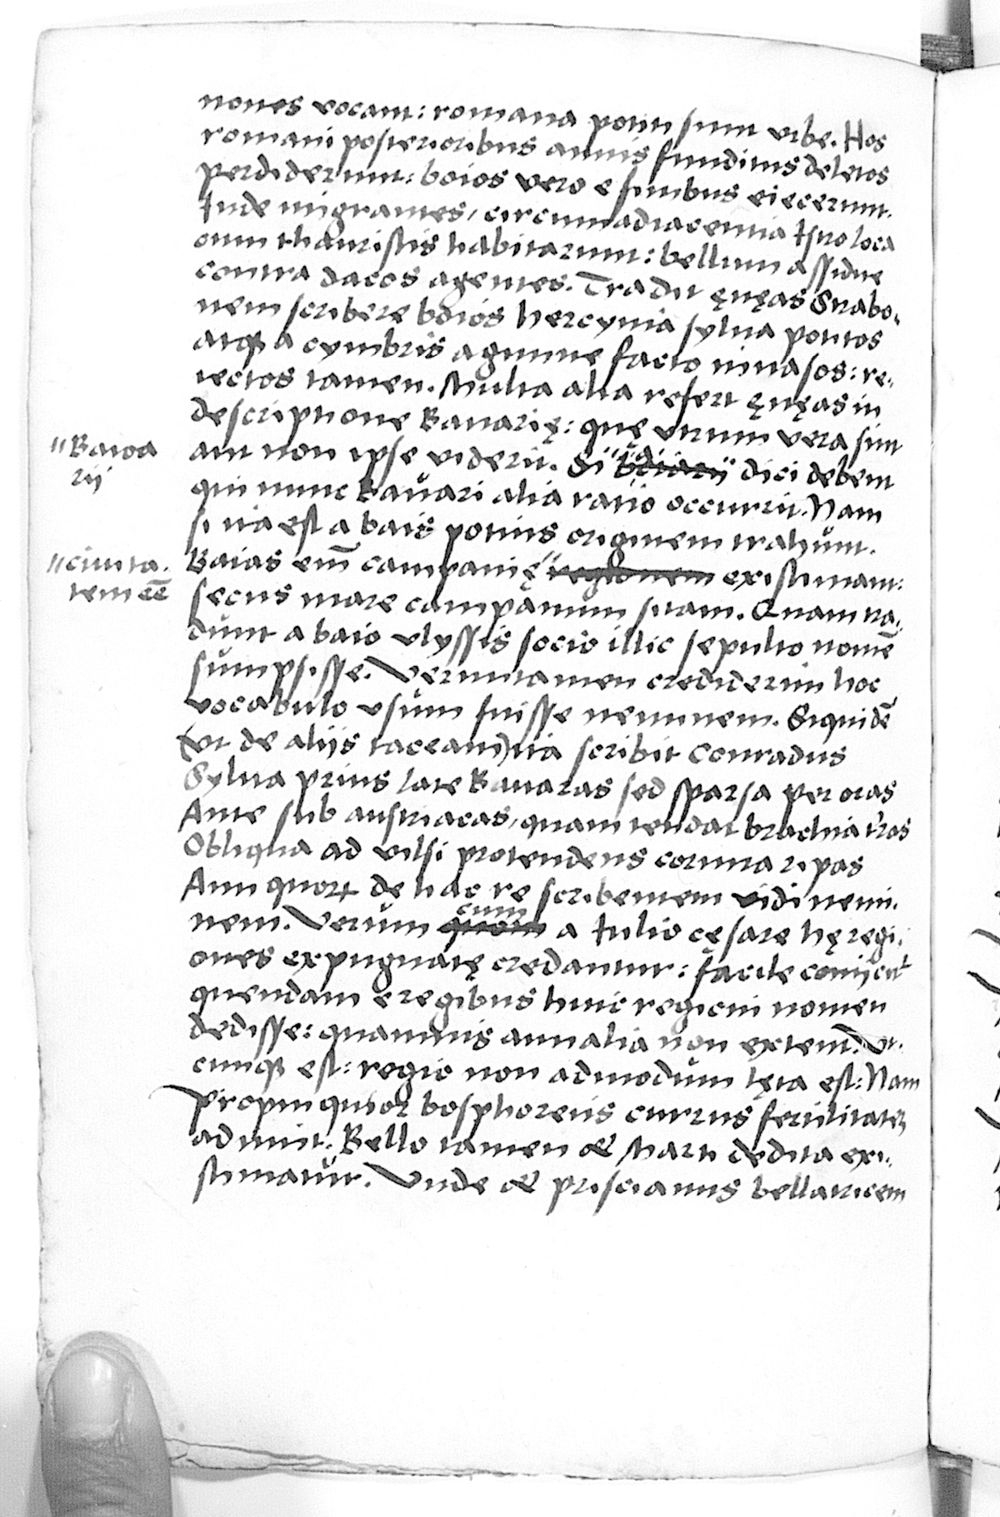 nones vocant: romana potiti sunt vrbe. Hos
romani posterioribus annis funditus deletos
perdiderunt: boios vero e finibus eiecerunt.
Inde migrantes, circumadiacentia Istro loca
cum thauristis habitarunt: bellum assidue
contra dacos agentes. Tradit ęnęas Strabo-
nem scribere boios hercynia sylua potitos
atqꝫ a cymbris agmine facto inuasos: re-
iectos tamen. Multa alia refert ęnęas in
descriptione Bauarię: quę vtrum vera sint
"Baioarij
aut non ipse viderit. Si " dici debent
qui nunc Bauari alia ratio occurrit. Nam
si ita est a bais potius originem trahunt.
"ciuita-
tem eē
Baias em̄ campanię" regionem existimant:
secus mare campanum sitam. Quam tra-
dunt a baio vlyssis socio illic sepulto nomē
sumpsisse. Veruntamen crediderim hoc
vocabulo vsum fuisse neminem. Siquidē
(vt de alijs taceam) ita scribit Conradus
Sylua prius late Bauaras sed sparsa per oras
Ante sub austriacas, quam tendat brachia tr̄as
Obliqua ad vilsi protendens cornua ripas
Antiquoꝝ de hac re scribentem vidi nemi-
cum
nem. Verum quom a Iulio cęsare hę regi-
ones expugnatę credantur: facile conijciūt
quendam e regibus huic regioni nomen
dedisse: quamuis annalia non extent. Vt-
cunqꝫ est: regio non admodum lęta est: Nam
Propinquior bosphoreus currus fertilitatem
adimit. Bello tamen & Marti dedita exi-
stimatur. Vnde & priscianus bellatricem